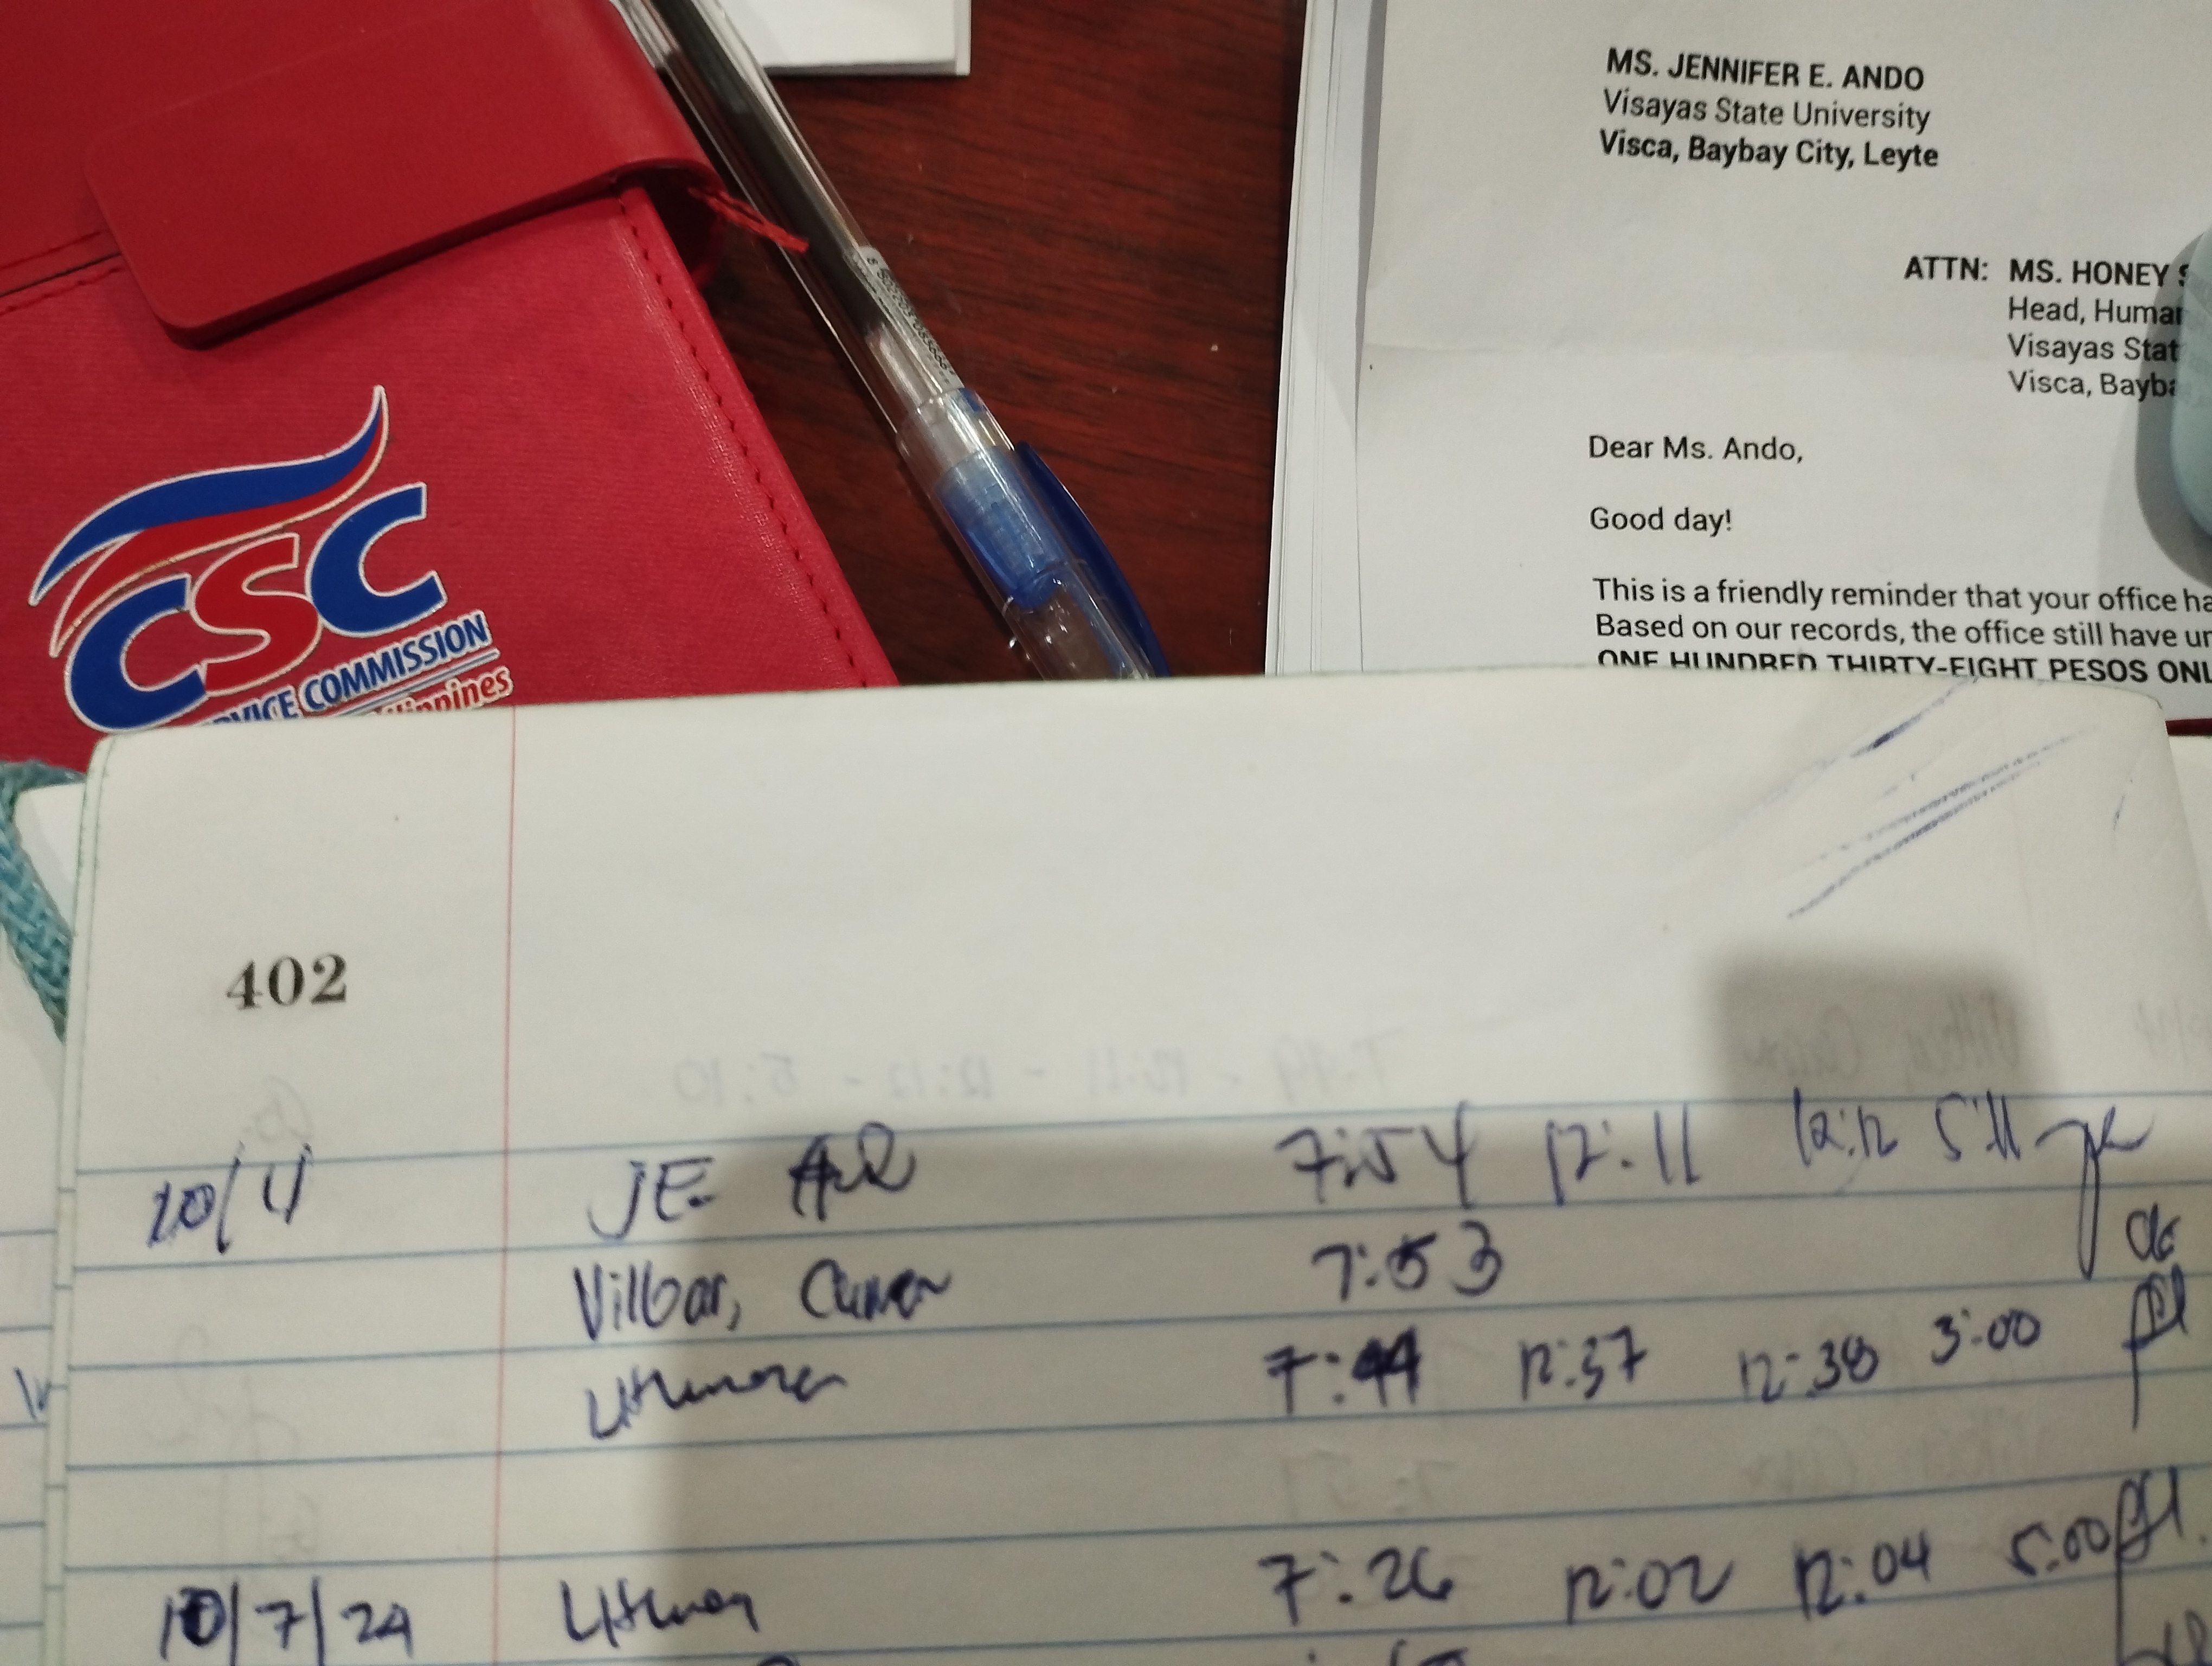 CSC
SERVICE COMMISSION
Philippines
MS. JENNIFER E. ANDO
Visayas State University
Visca, Baybay City, Leyte
ATTN: MS. HONEY S
Head, Human
Visayas Stat
Visca, Bayba
Dear Ms. Ando,
Good day!
This is a friendly reminder that your office ha
Based on our records, the office still have un
ONE HUNDRED THIRTY-EIGHT PESOS ONL
402
10/4 JE 7:54 12:11 12:12 5:11
Villbar, 7:53
7:44 12:37 12:38 3:00
10/7/24 7:26 12:02 12:04 5:00